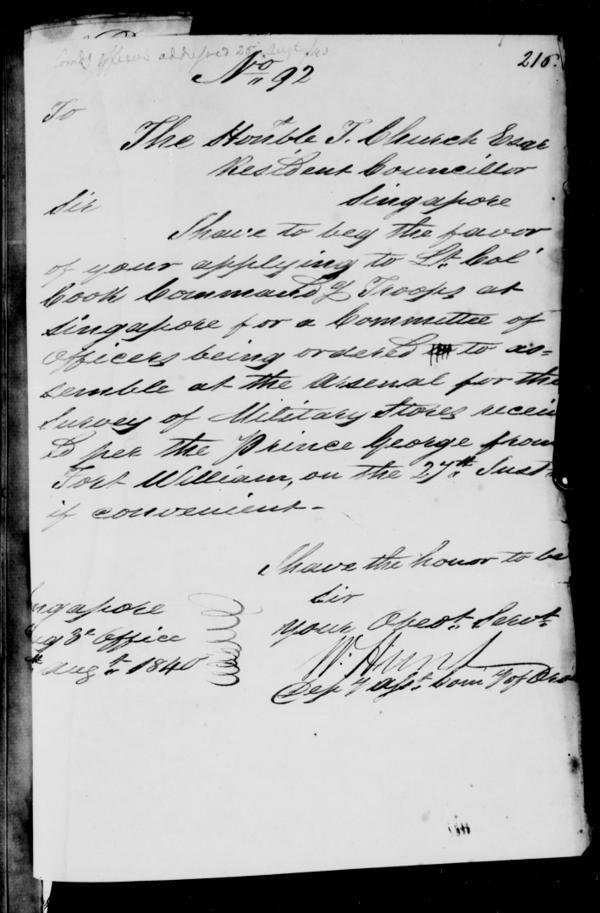 officer addressed 25 Augt /40
215.
No 92
To
The Honble T. Church Esqr
Resident Councillor
Singapore
Sir
I have to beg the favor
of your applying to Lt. Col
Cook Command.g Troops at
Singapore for a Committee of
Officers being ordered to as=
semble at the Arsenal for the
Survey of Military Stores receiv
d per the Prince George from
Fort William, on the 27th Inst
if convenient-
I have the honor to be
Sir
Your Obedt. Servt.
W. Hunt
Depy Asst. Comy of Ord
ngapore
Office
Augt. 1840